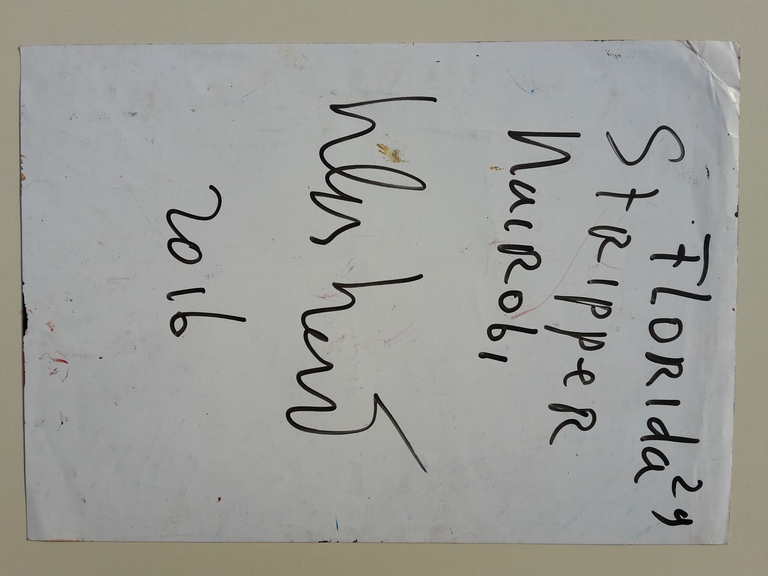 Florida 24
Stripper
Nairobi
2016